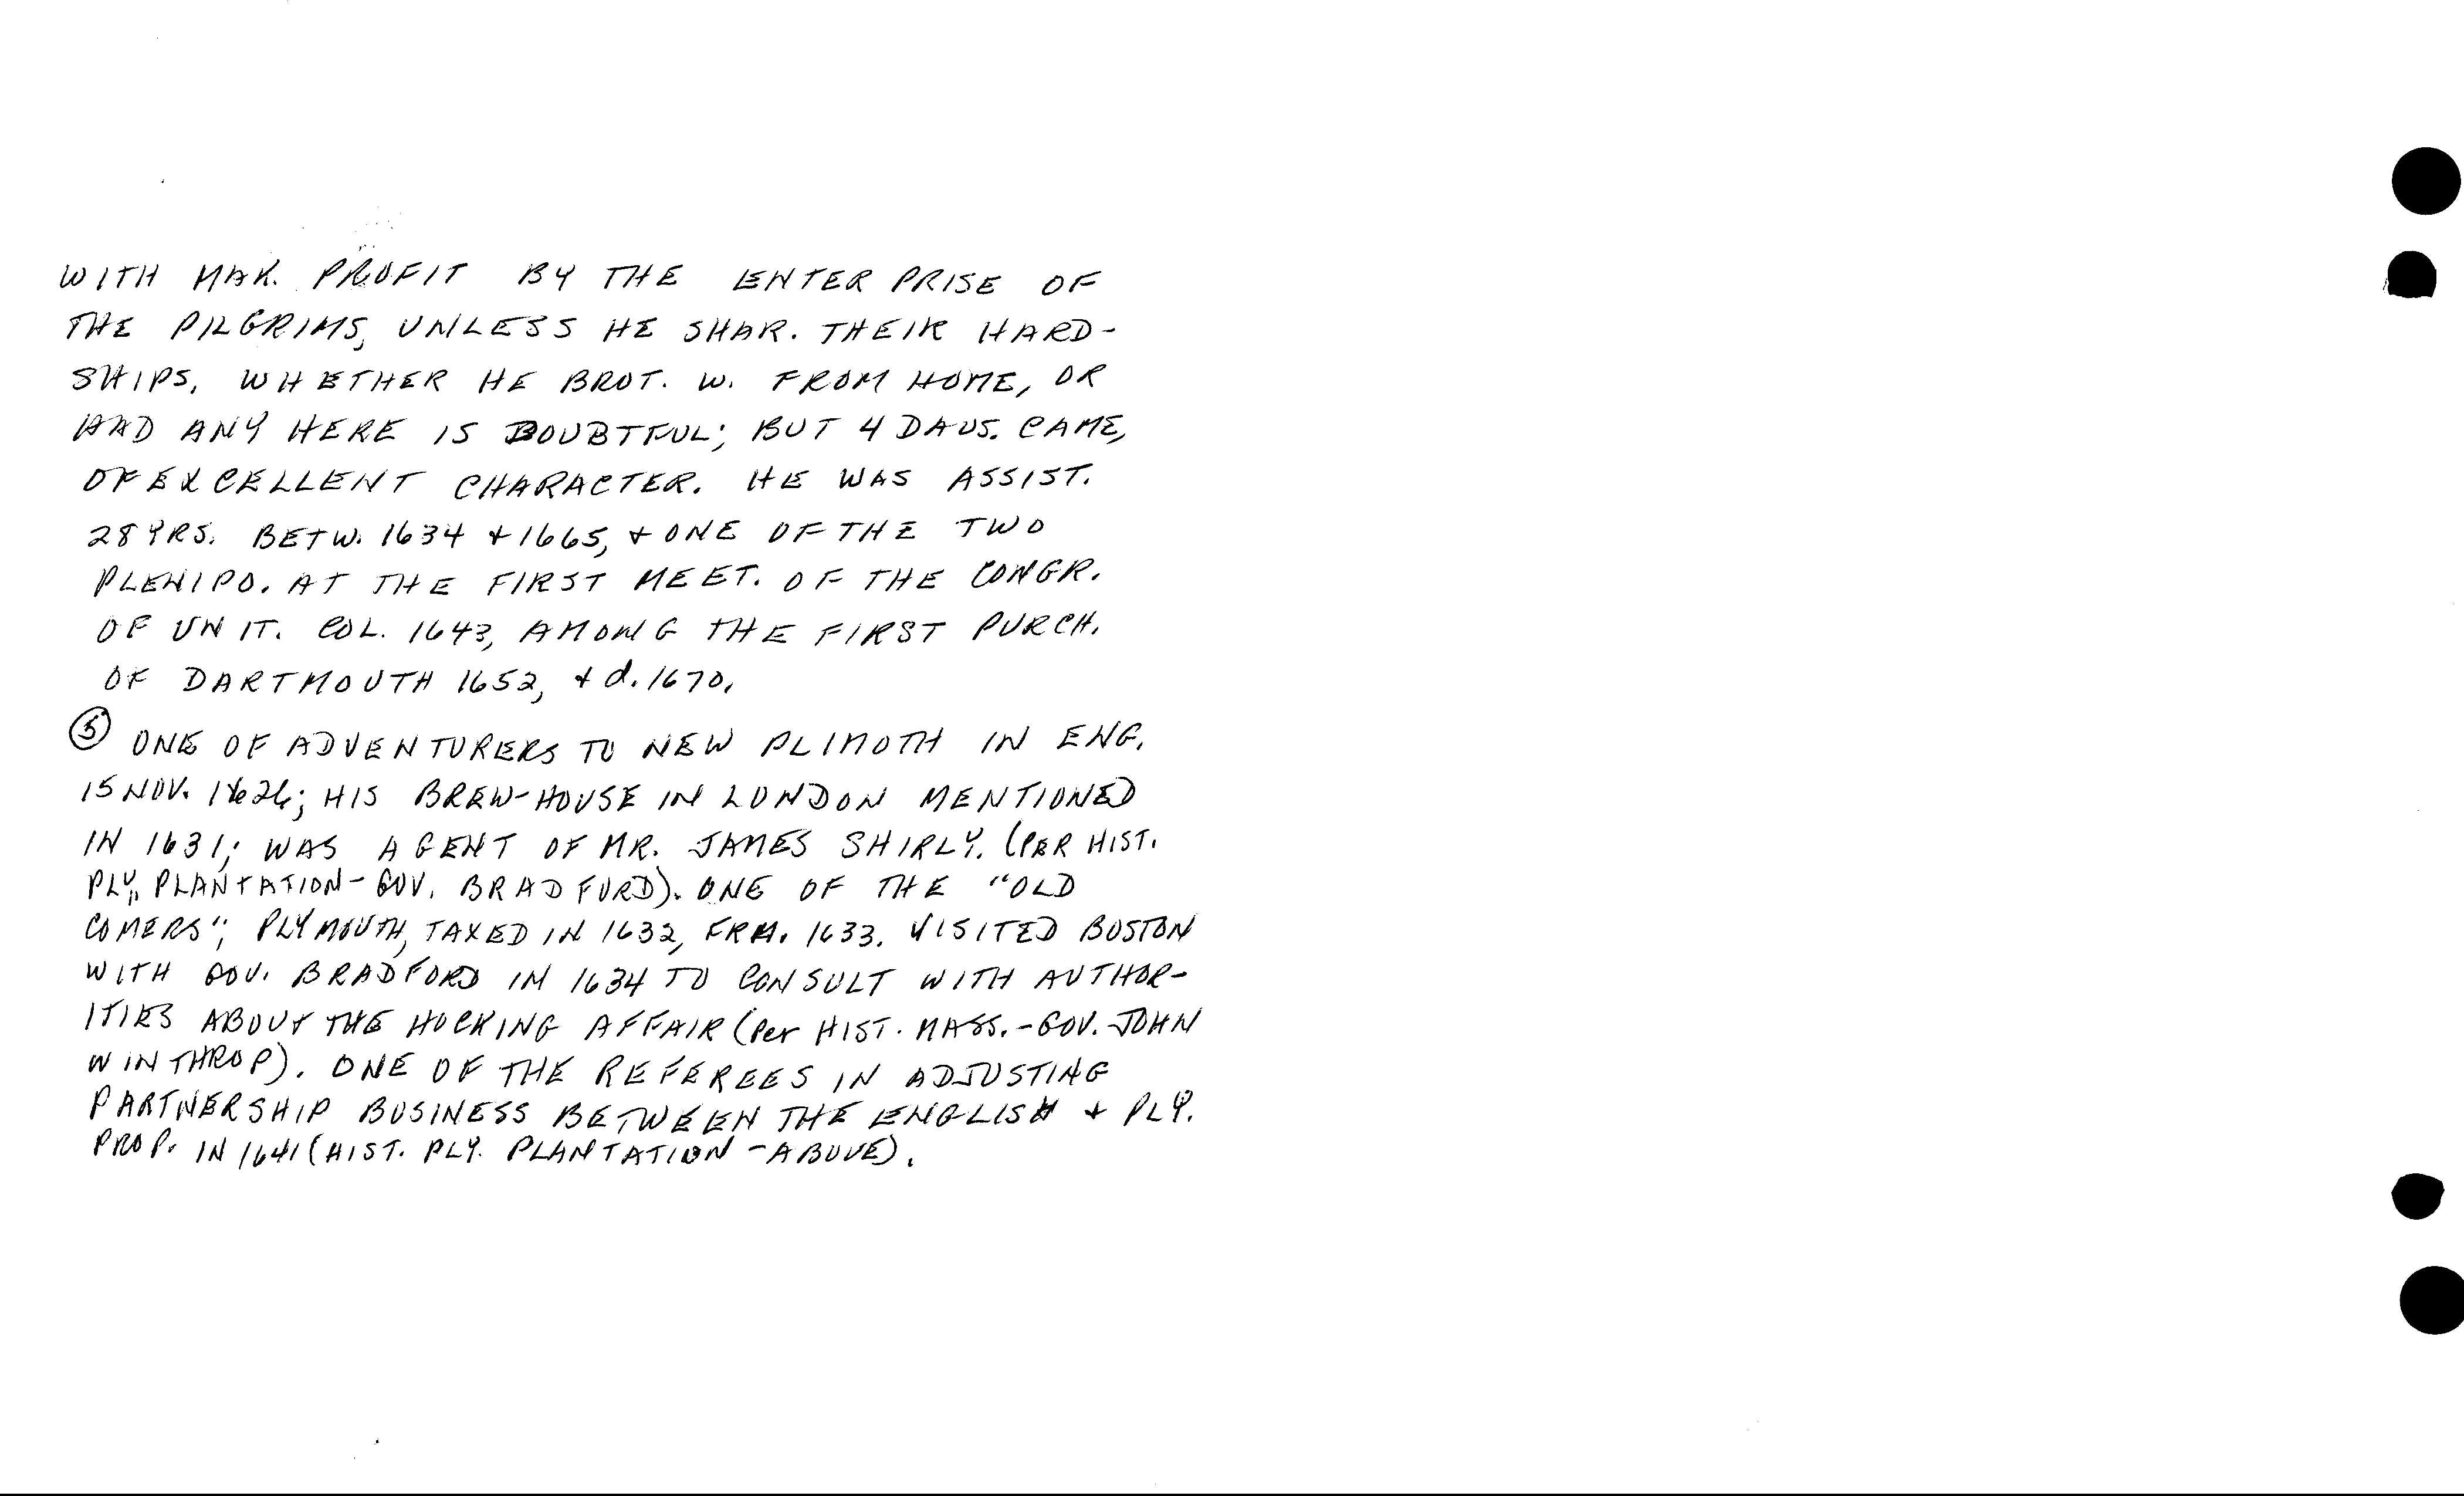 WITH MAK. PROFIT BY THE ENTERPRISE OF
THE PILGRIMS, UNLESS HE SHAR. THEIR HARD-
SHIPS. WHETHER HE BROT. W. FROM HOME, OR
HAD ANY HERE IS DOUBTFUL; BUT 4 DAUS. CAME,
OF EXCELLENT CHARACTER. HE WAS ASSIST.
28 YRS. BETW. 1634 + 1665, + ONE OF THE TWO
PLENIPO. AT THE FIRST MEET. OF THE CONGR.
OF UNIT. COL. 1643, AMONG THE FIRST PURCH.
OF DARTMOUTH 1652, + d. 1670.
⑤ ONE OF ADVENTURERS TO NEW PLIMOTH IN ENG.
15 NOV. 1626; HIS BREW-HOUSE IN LONDON MENTIONED
IN 1631; WAS AGENT OF MR. JAMES SHIRLY. (PER HIST.
PLY. PLANTATION - GOV. BRADFORD). ONE OF THE "OLD
COMERS"; PLYMOUTH, TAXED IN 1632, FRM. 1633. VISITED BOSTON
WITH GOV. BRADFORD IN 1634 TO CONSULT WITH AUTHOR-
ITIES ABOUT THE HOCKING AFFAIR (Per HIST. MASS. - GOV. JOHN
WINTHROP). ONE OF THE REFEREES IN ADJUSTING
PARTNERSHIP BUSINESS BETWEEN THE ENGLISH + PLY.
PROP. IN 1641 (HIST. PLY. PLANTATION - ABOVE).